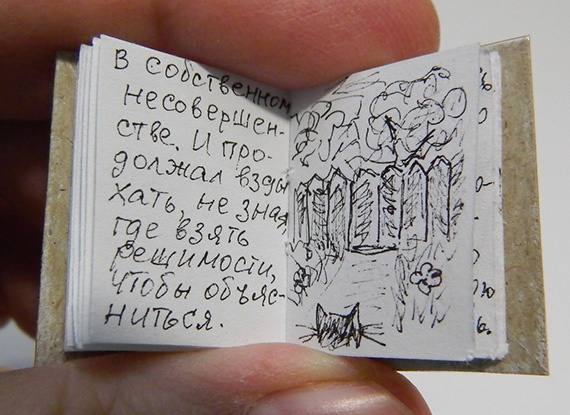 В собственном
несовершен-
стве. И про-
должал взды
хать, не зная,
где взять
решимости,
чтобы объяс-
ниться.